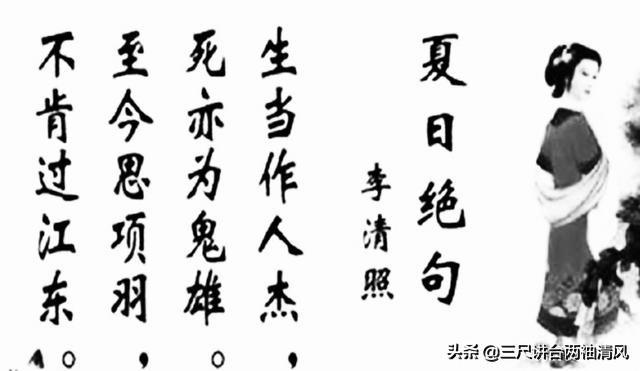 夏日绝句
李清照
生当作人杰，
死亦为鬼雄。
至今思项羽，
不肯过江东。
头条 @三尺讲台两袖清风